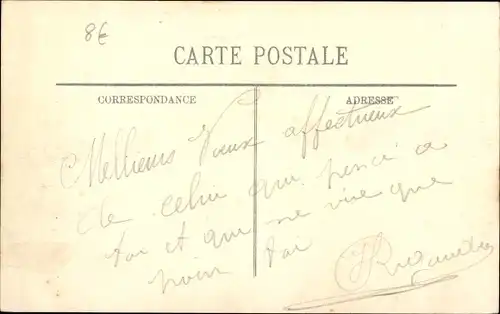 8€
CARTE POSTALE
CORRESPONDANCE
ADRESSE
Mellieurs Voeux affectueux
de celui qui pense a
toi et que ne vive que
pour toi